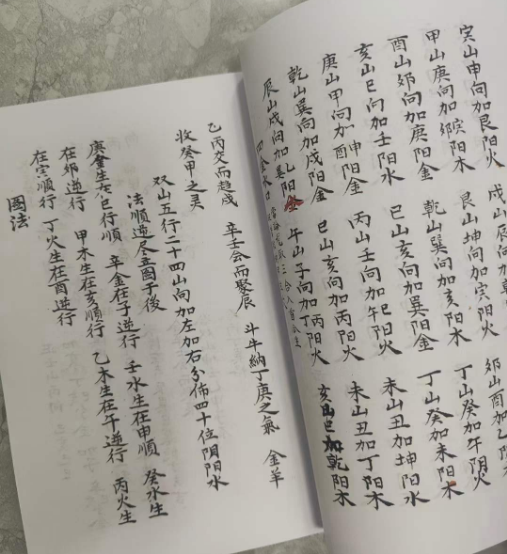 寅山申向加艮阳火 戌山辰向加
甲山庚向加寅阳木 艮山坤向加寅阳火 丁山癸加午阴火
酉山卯向加庚阳金 乾山巽向加亥阳木 丁山癸加未阳木
亥山巳向加壬阳水 巳山亥向加巽阳金 未山丑加坤阳水
庚山甲向加申阳金 丙山壬向加午阳火 未山丑加丁阳木
乾山巽向加戌阳金 巳山亥向加丙阳火 亥山巳加乾阳木
辰山戌向加乙阳金 午山子向加丁丙阳火
乙丙交而趋戌 辛壬会而聚辰 斗牛納丁庚之氣 金羊
收癸甲之灵
双山五行二十四山向加左加右分佈四十位阴阳水
法順逆尽在图于後
庚金生在巳行順 辛金在子逆行 壬水生在申順 癸水生
在卯逆行 甲木生在亥順行 乙木生在午逆行 丙火生
在寅順行 丁火生在酉逆行
图法